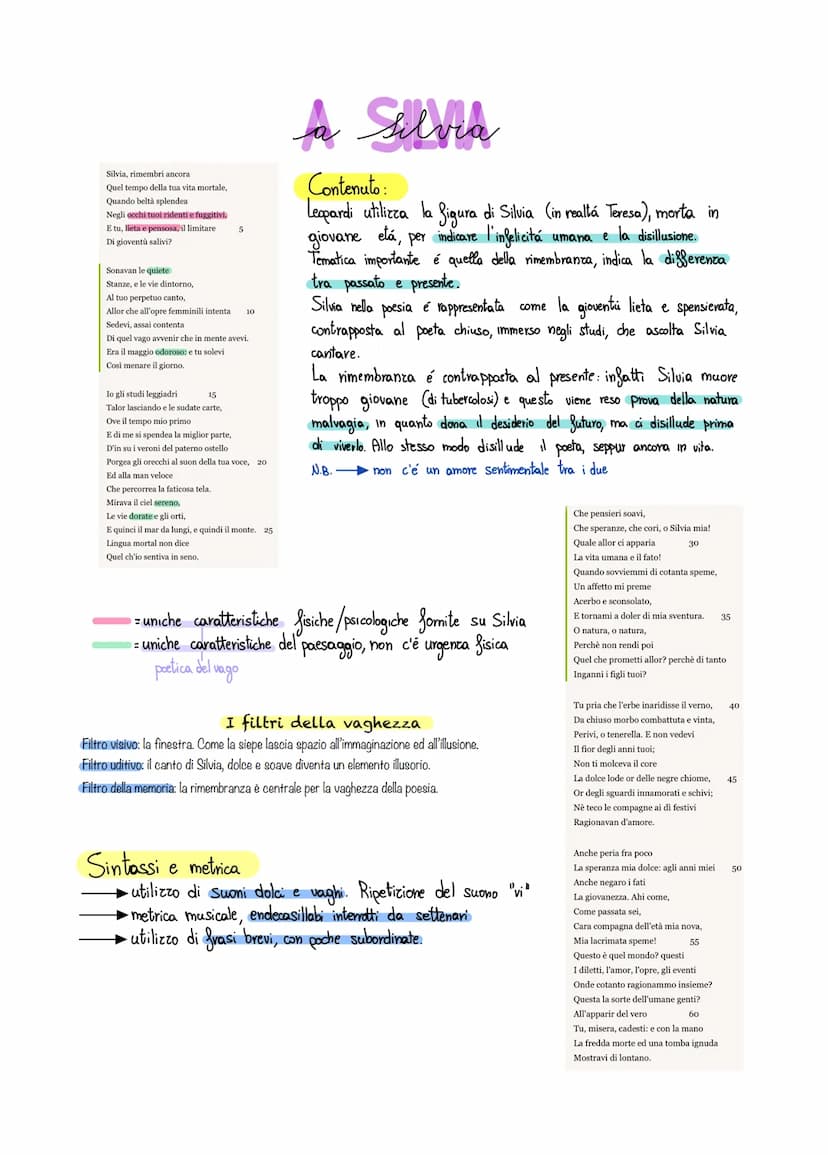 A SILVIA
a Silvia
Silvia, rimembri ancora
Quel tempo della tua vita mortale,
Quando beltà splendea
Negli occhi tuoi ridenti e fuggitivi,
E tu, lieta e pensosa, il limitare 5
Di gioventù salivi?
Sonavan le quiete
Stanze, e le vie dintorno,
Al tuo perpetuo canto,
Allor che all'opre femminili intenta 10
Sedevi, assai contenta
Di quel vago avvenir che in mente avevi.
Era il maggio odoroso: e tu solevi
Così menare il giorno.
Io gli studi leggiadri 15
Talor lasciando e le sudate carte,
Ove il tempo mio primo
E di me si spendea la miglior parte,
D'in su i veroni del paterno ostello
Porgea gli orecchi al suon della tua voce, 20
Ed alla man veloce
Che percorrea la faticosa tela.
Mirava il ciel sereno,
Le vie dorate e gli orti,
E quinci il mar da lungi, e quindi il monte. 25
Lingua mortal non dice
Quel ch'io sentiva in seno.
Contenuto:
Leopardi utilizza la figura di Silvia (in realtá Teresa), morta in
giovane etá, per indicare l'infelicitá umana e la disillusione.
Tematica importante é quella della rimembranza, indica la differenza
tra passato e presente.
Silvia nella poesia é rappresentata come la gioventú lieta e spensierata,
contrapposta al poeta chiuso, immerso negli studi, che ascolta Silvia
cantare.
La rimembranza é contrapposta al presente: infatti Silvia muore
troppo giovane (di tubercolosi) e questo viene reso prova della natura
malvagia, in quanto dona il desiderio del futuro, ma ci disillude prima
di viverlo. Allo stesso modo disillude il poeta, seppur ancora in vita.
N.B. → non c'é un amore sentimentale tra i due
= uniche caratteristiche fisiche/psicologiche fornite su Silvia
= uniche caratteristiche del paesaggio, non c'é urgenza fisica
poetica del vago
I filtri della vaghezza
Filtro visivo: la finestra. Come la siepe lascia spazio all'immaginazione ed all'illusione.
Filtro uditivo: il canto di Silvia, dolce e soave diventa un elemento illusorio.
Filtro della memoria: la rimembranza è centrale per la vaghezza della poesia.
Sintassi e metrica
→ utilizzo di suoni dolci e vaghi. Ripetizione del suono "vi"
→ metrica musicale, endecasillabi interrotti da settenari
→ utilizzo di frasi brevi, con poche subordinate.
Che pensieri soavi,
Che speranze, che cori, o Silvia mia!
Quale allor ci apparia 30
La vita umana e il fato!
Quando sovviemmi di cotanta speme,
Un affetto mi preme
Acerbo e sconsolato,
E tornami a doler di mia sventura. 35
O natura, o natura,
Perchè non rendi poi
Quel che prometti allor? perchè di tanto
Inganni i figli tuoi?
Tu pria che l'erbe inaridisse il verno, 40
Da chiuso morbo combattuta e vinta,
Perivi, o tenerella. E non vedevi
Il fior degli anni tuoi;
Non ti molceva il core
La dolce lode or delle negre chiome, 45
Or degli sguardi innamorati e schivi;
Nè teco le compagne ai dì festivi
Ragionavan d'amore.
Anche peria fra poco
La speranza mia dolce: agli anni miei 50
Anche negaro i fati
La giovanezza. Ahi come,
Come passata sei,
Cara compagna dell'età mia nova,
Mia lacrimata speme! 55
Questo è quel mondo? questi
I diletti, l'amor, l'opre, gli eventi
Onde cotanto ragionammo insieme?
Questa la sorte dell'umane genti?
All'apparir del vero 60
Tu, misera, cadesti: e con la mano
La fredda morte ed una tomba ignuda
Mostravi di lontano.